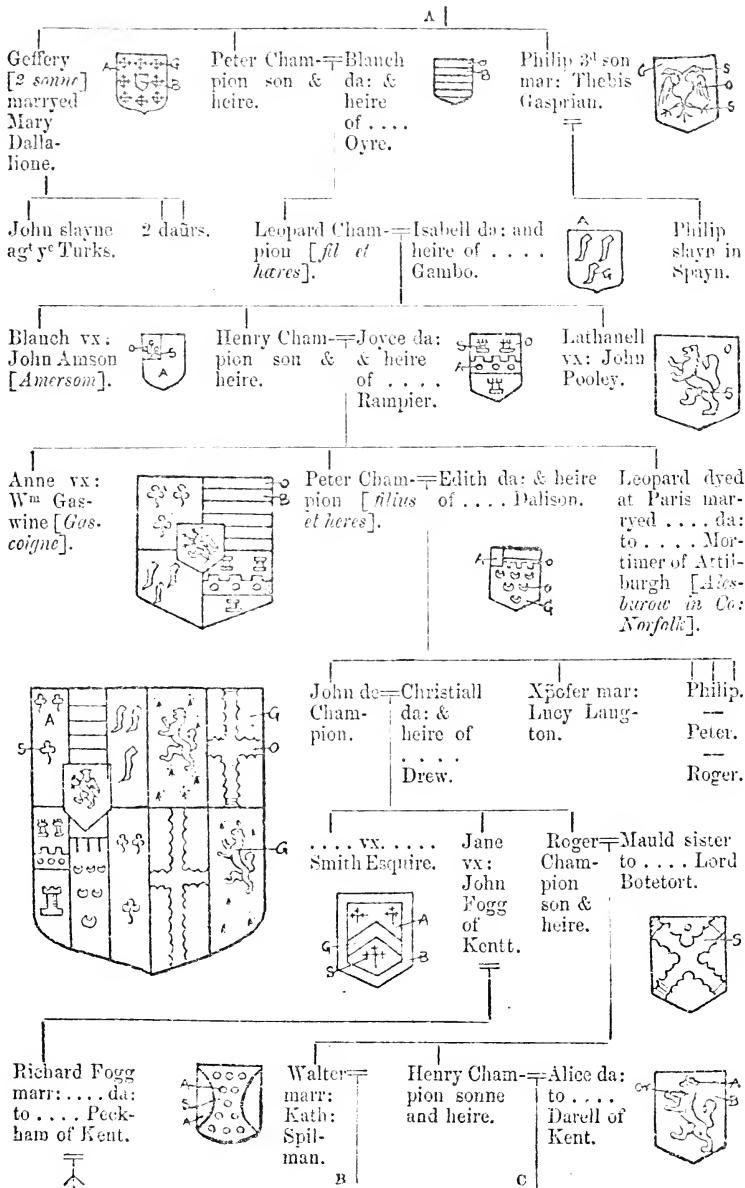 A
Geffery
[2 sonne]
marryed
Mary
Dalla-
lione.
A
G
B
Peter Cham-
pion son &
heire.
Blanch
da: &
heire
of . . . .
Oyre.
O
B
Philip 3d son
mar: Thebis
Gasprian.
G
S
O
S
John slayne
agt ye Turks.
2 daũrs.
Leopard Cham-
pion [fil et
hæres].
Isabell da: and
heire of . . . .
Gambo.
A
G
Philip
slayn in
Spayn.
Blanch vx:
John Amson
[Amersom].
O
S
A
Henry Cham-
pion son &
heire.
Joyce da:
& heire
of . . . .
Rampier.
S
O
A
Lathanell
vx: John
Pooley.
O
S
Anne vx:
Wm Gas-
wine [Gas-
coigne].
O
B
Peter Cham-
pion [filius
et heres].
Edith da: & heire
of . . . . Dalison.
A
O
O
G
Leopard dyed
at Paris mar-
ryed . . . . da:
to . . . . Mor-
timer of Attil-
burgh [Ates-
burow in Co:
Norfolk].
A
S
G
O
G
John de
Cham-
pion.
Christiall
da: &
heire of
. . . .
Drew.
Xp̃ofer mar:
Lucy Laug-
ton.
Philip.
—
Peter.
—
Roger.
. . . . vx. . . . .
Smith Esquire.
A
G
B
S
Jane
vx:
John
Fogg
of
Kentt.
Roger
Cham-
pion
son &
heire.
Mauld sister
to . . . . Lord
Botetort.
S
Richard Fogg
marr: . . . . da:
to . . . . Peck-
ham of Kent.
A
S
A
Walter
marr:
Kath:
Spil-
man.
B
Henry Cham-
pion sonne
and heire.
Alice da:
to . . . .
Darell of
Kent.
C
Gr
A
B